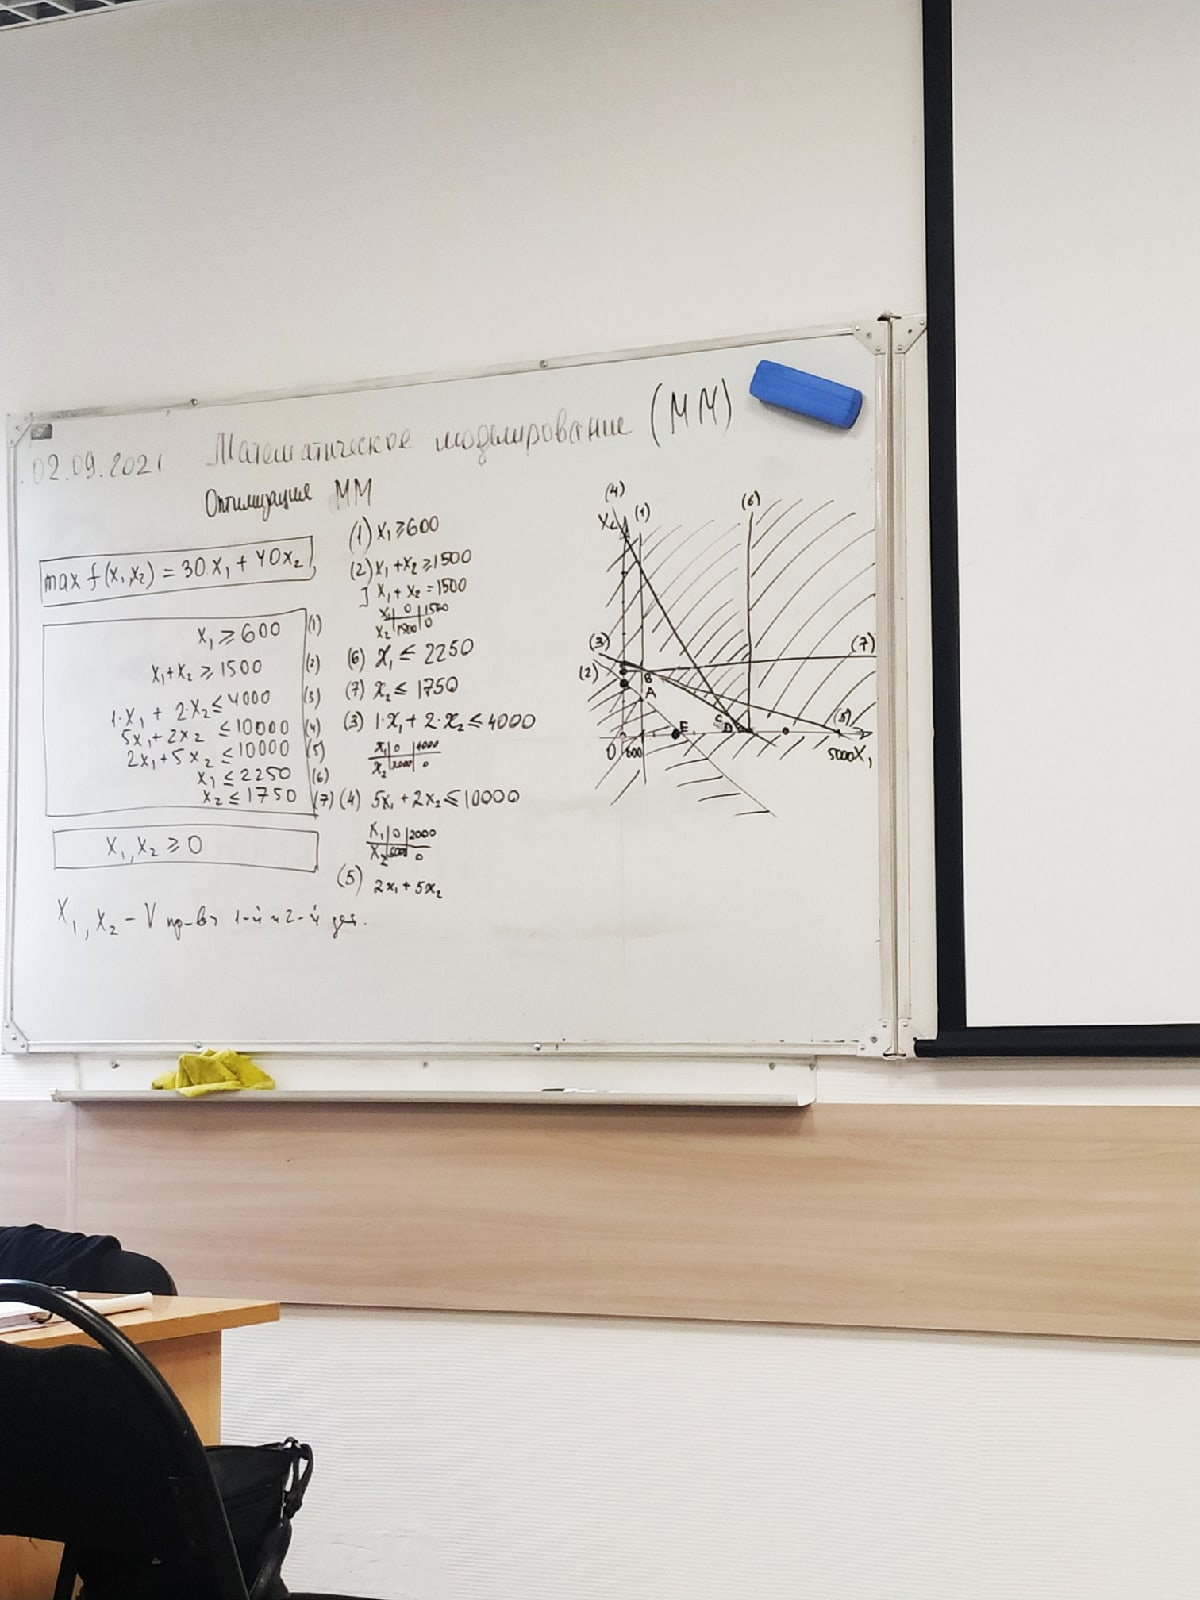 02.09.2021 Математическое моделирование (ММ)
Оптимизация ММ
max f(x₁,x₂) = 30x₁ + 40x₂
x₁ ≥ 600 (1)
x₁+x₂ ≥ 1500 (2)
1·x₁ + 2·x₂ ≤ 4000 (3)
5x₁ + 2x₂ ≤ 10000 (4)
2x₁ + 5x₂ ≤ 10000 (5)
x₁ ≤ 2250 (6)
x₂ ≤ 1750 (7)
x₁, x₂ ≥ 0
x₁, x₂ – V пр-ва 1-й и 2-й
(1) x₁ ≥ 600
(2) x₁+x₂ ≥ 1500
x₁ + x₂ = 1500
x₁ | 0 | 1500
x₂ | 1500 | 0
(6) x₁ ≤ 2250
(7) x₂ ≤ 1750
(3) 1·x₁ + 2·x₂ ≤ 4000
x₁ | 0 | 4000
x₂ | 2000 | 0
(4) 5x₁ + 2x₂ ≤ 10000
x₁ | 0 | 2000
x₂ | 5000 | 0
(5) 2x₁ + 5x₂
(4)
x₂ (1) (6)
(3) (7)
(2) B
A
E C D (5)
0 600 5000 x₁